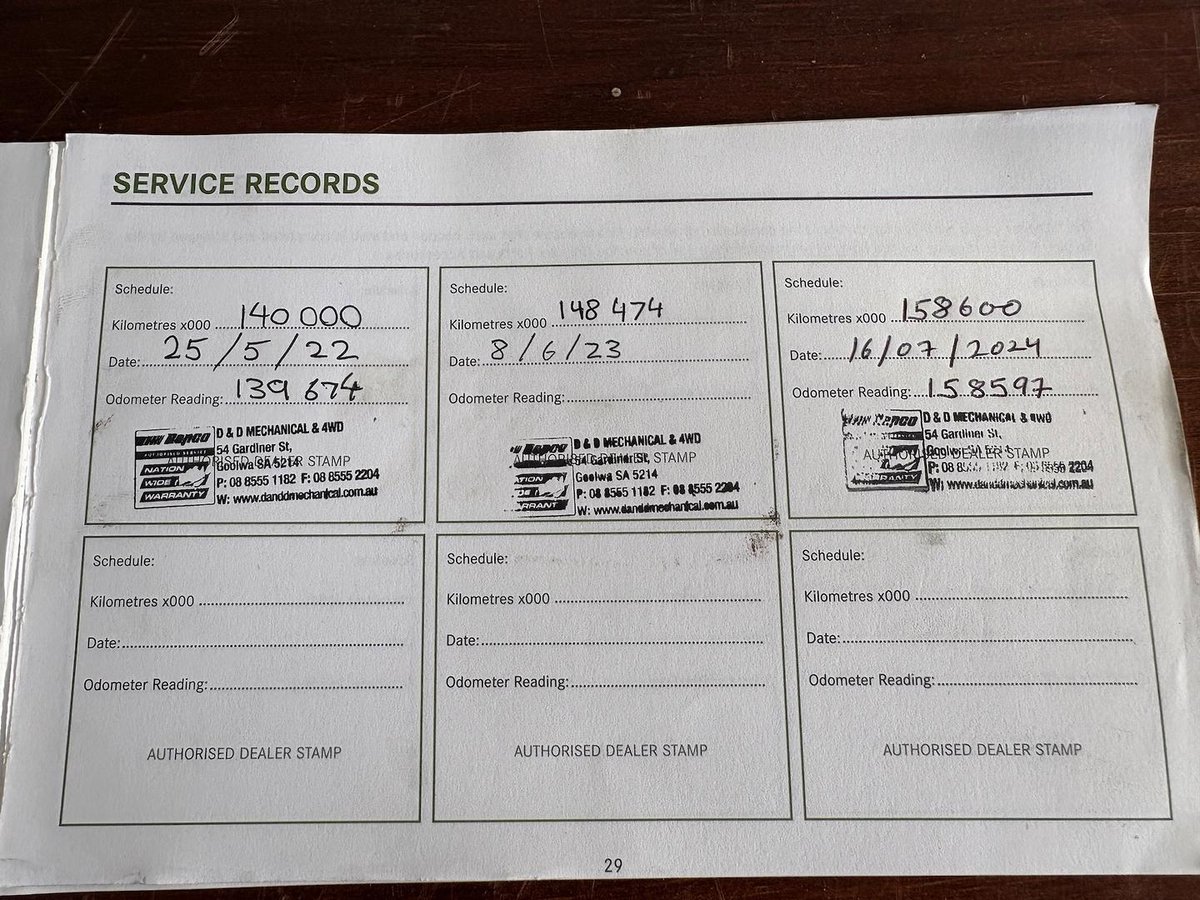 SERVICE RECORDS
Schedule:
Kilometres x000 140 000
Date: 25/5/22
Odometer Reading: 139 674
Repco
AUTHORISED SERVICE
NATION
WIDE
WARRANTY
D & D MECHANICAL & 4WD
54 Gardiner St,
Goolwa SA 5214
P: 08 8555 1182 F: 08 8555 2204
W: www.danddmechanical.com.au
AUTHORISED DEALER STAMP
Schedule:
Kilometres x000 148 474
Date: 8/6/23
Odometer Reading:
Repco
TION
DE
RRANT
D & D MECHANICAL & 4WD
54 Gardiner St,
Goolwa SA 5214
P: 08 8555 1182 F: 08 8555 2204
W: www.danddmechanical.com.au
AUTHORISED DEALER STAMP
Schedule:
Kilometres x000 158600
Date: 16/07/2024
Odometer Reading: 158597
Repco
RANTY
D & D MECHANICAL & 4WD
54 Gardiner St,
Goolwa SA 5214
P: 08 1182 F: 2204
W: www.danddmechanical.com.au
AUTHORISED DEALER STAMP
Schedule:
Kilometres x000
Date:
Odometer Reading:
AUTHORISED DEALER STAMP
Schedule:
Kilometres x000
Date:
Odometer Reading:
AUTHORISED DEALER STAMP
Schedule:
Kilometres x000
Date:
Odometer Reading:
AUTHORISED DEALER STAMP
29